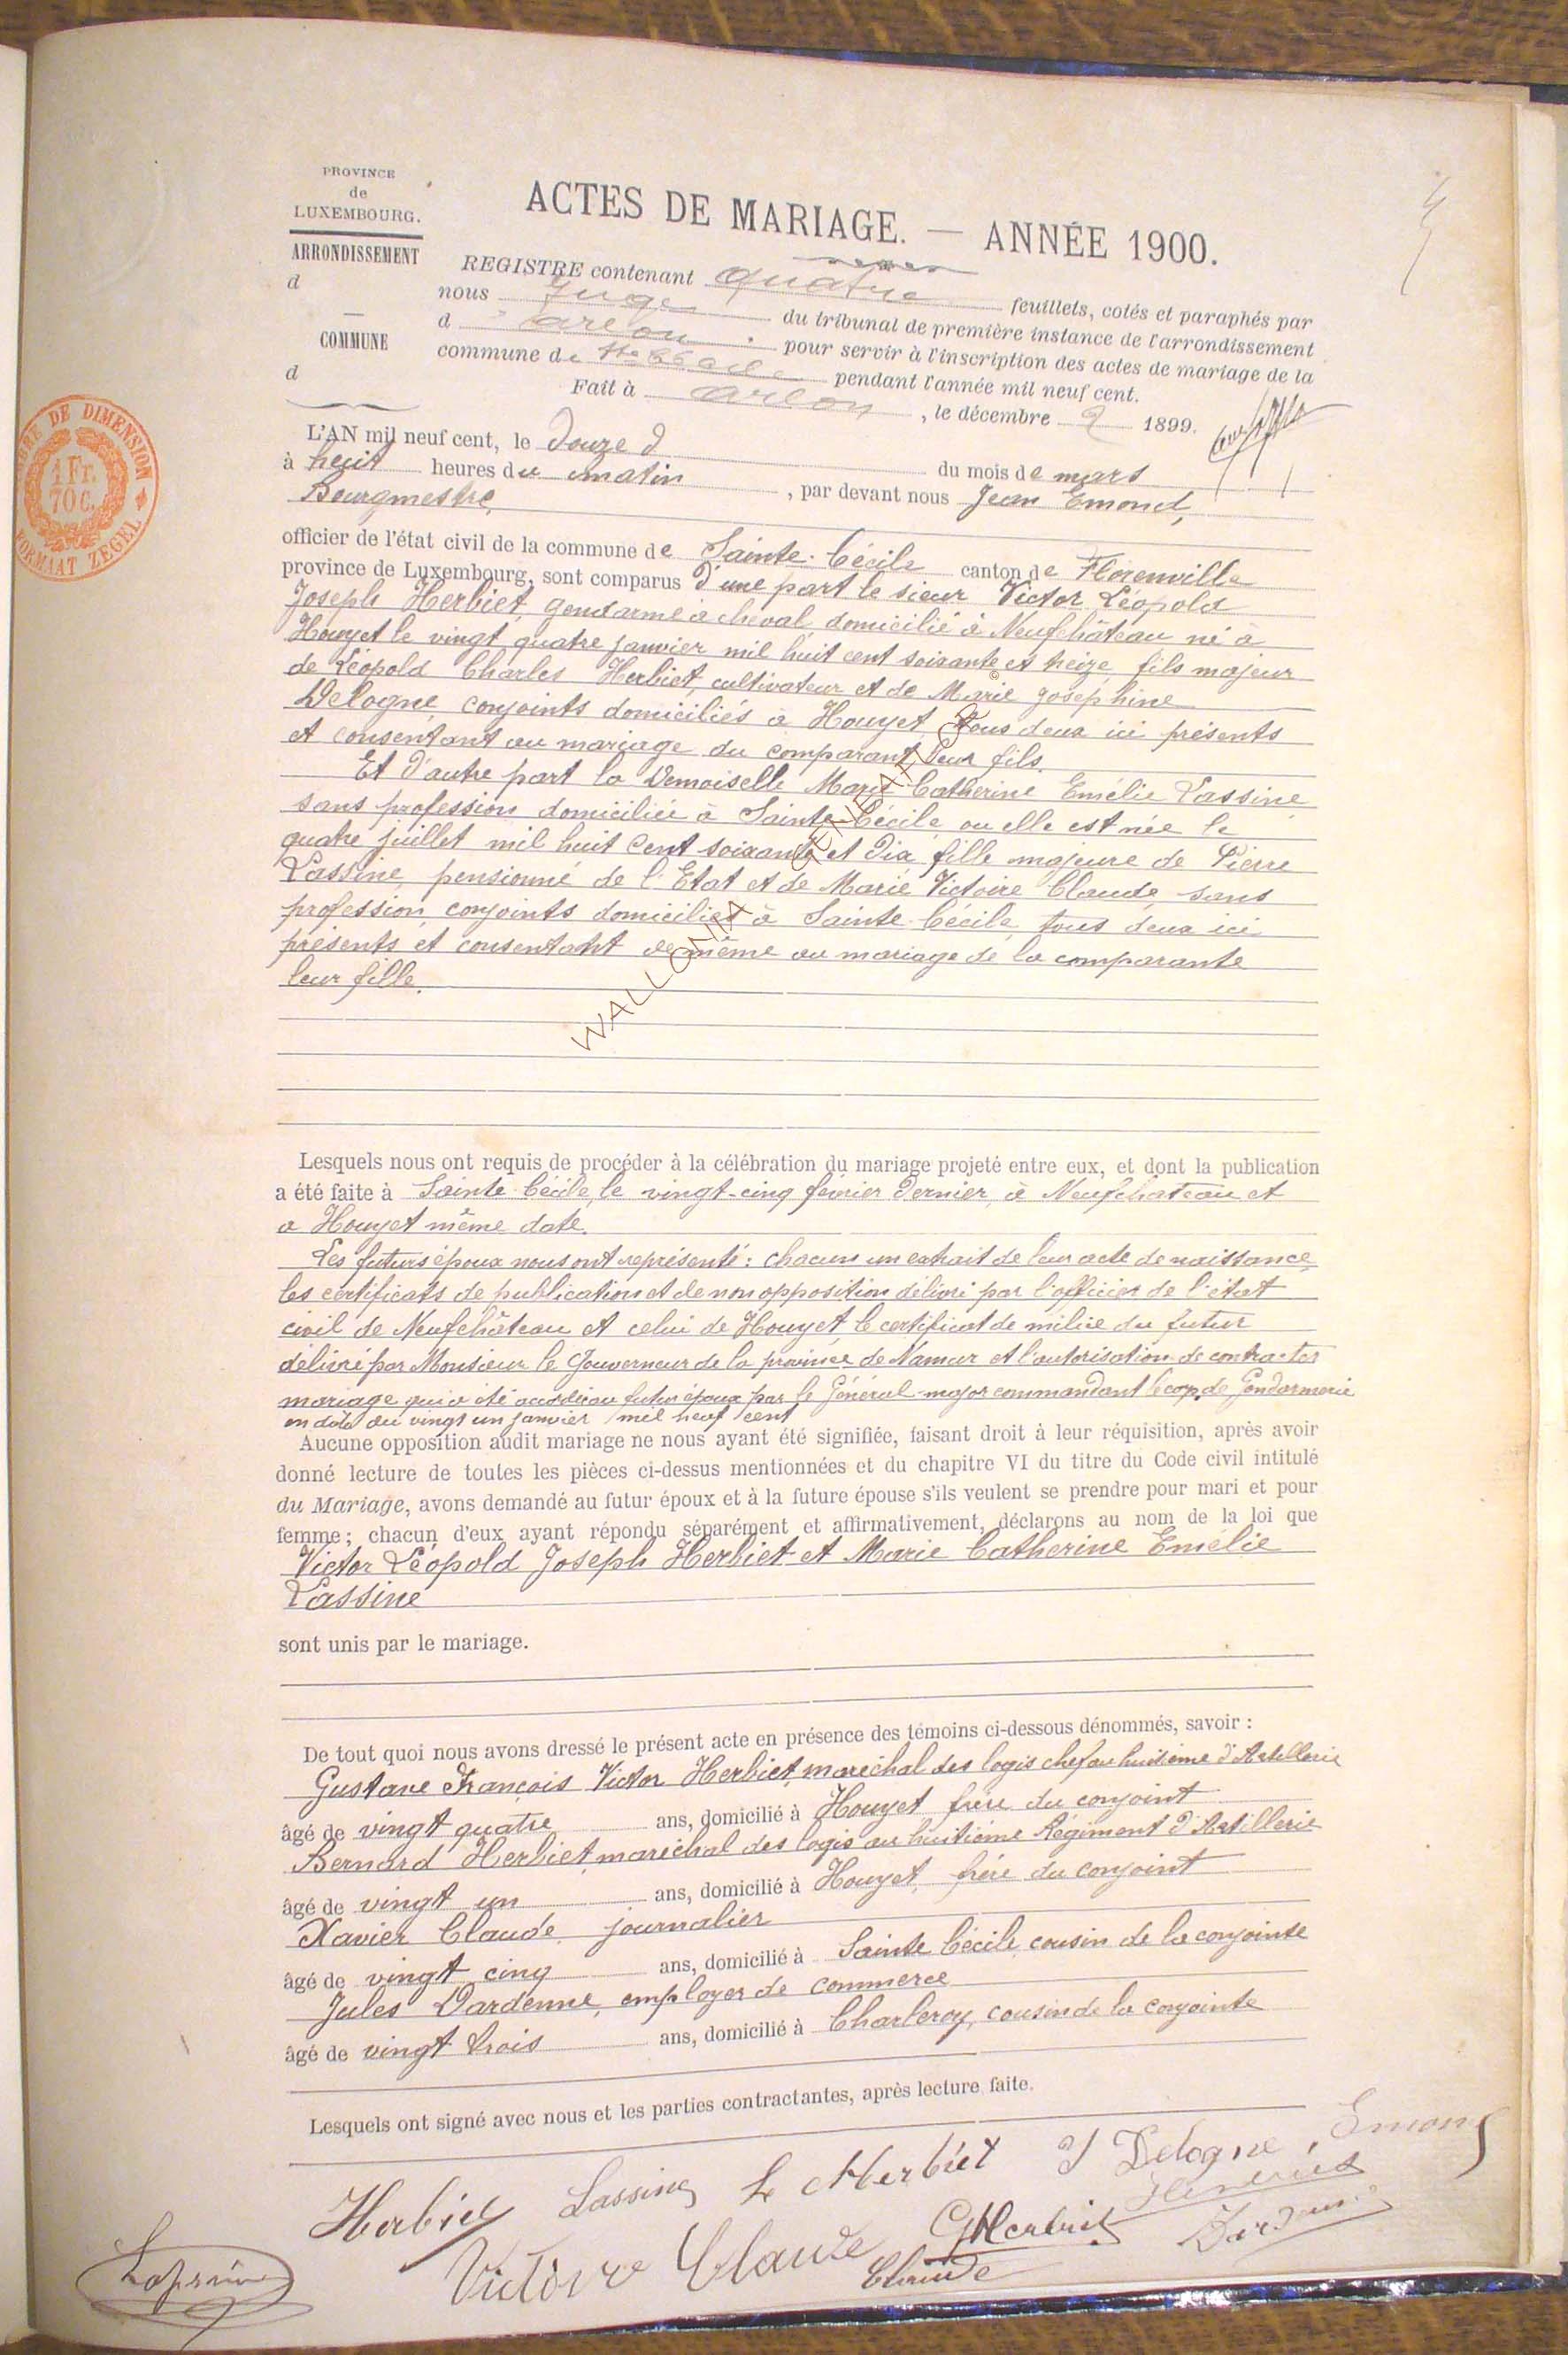 PROVINCE
de
LUXEMBOURG.
ARRONDISSEMENT
d
COMMUNE
d
ACTES DE MARIAGE. — ANNÉE 1900.
REGISTRE contenant quatre feuillets, cotés et paraphés par
nous Juge du tribunal de première instance de l'arrondissement
d'Arlon pour servir à l'inscription des actes de mariage de la
commune de Ste Cécile pendant l'année mil neuf cent.
Fait à Arlon, le décembre 2 1899.
TIMBRE DE DIMENSION
1 Fr.
70 C.
FORMAAT ZEGEL
L'AN mil neuf cent, le douze d du mois de mars
à huit heures du matin, par devant nous Jean Emond,
Bourgmestre,
officier de l'état civil de la commune de Sainte-Cécile canton de Florenville
province de Luxembourg, sont comparus d'une part le sieur Victor Léopold
Joseph Herbiet, gendarme à cheval, domicilié à Neufchâteau né à
Houyet le vingt quatre janvier mil huit cent soixante et treize, fils majeur
de Léopold Charles Herbiet, cultivateur et de Marie Josephine
Delogne, conjoints domiciliés à Houyet, tous deux ici présents
et consentant au mariage du comparant, leur fils.
Et d'autre part la Demoiselle Marie Catherine Emélie Lassine,
sans profession domiciliée à Sainte-Cécile, ou elle est née le
quatre juillet mil huit cent soixante et dix, fille majeure de Pierre
Lassine, pensionné de l'Etat et de Marie Victoire Claude, sans
profession, conjoints domiciliés à Sainte-Cécile, tous deux ici
présents et consentant de même au mariage de la comparante
leur fille.
WALLONIA GENEANET ©
Lesquels nous ont requis de procéder à la célébration du mariage projeté entre eux, et dont la publication
a été faite à Sainte-Cécile, le vingt-cinq février dernier, à Neufchateau et
a Houyet même date.
Les futurs époux nous ont représenté : chacun un extrait de leur acte de naissance,
les certificats de publication et de non opposition délivré par l'officier de l'état
civil de Neufchâteau et celui de Houyet, le certificat de milice du futur
délivré par Monsieur le Gouverneur de la province de Namur et l'autorisation de contracter
mariage qui a été accordée au futur époux par le Général-major commandant le corps de Gendarmerie
en date du vingt un janvier mil neuf cent
Aucune opposition audit mariage ne nous ayant été signifiée, faisant droit à leur réquisition, après avoir
donné lecture de toutes les pièces ci-dessus mentionnées et du chapitre VI du titre du Code civil intitulé
du Mariage, avons demandé au futur époux et à la future épouse s'ils veulent se prendre pour mari et pour
femme ; chacun d'eux ayant répondu séparément et affirmativement, déclarons au nom de la loi que
Victor Léopold Joseph Herbiet et Marie Catherine Emélie
Lassine
sont unis par le mariage.
De tout quoi nous avons dressé le présent acte en présence des témoins ci-dessous dénommés, savoir :
Gustave François Victor Herbiet, maréchal des logis chef au huitième d'Artillerie
âgé de vingt quatre ans, domicilié à Houyet frère du conjoint
Bernard Herbiet, maréchal des logis au huitième Régiment d'Artillerie
âgé de vingt un ans, domicilié à Houyet, frère du conjoint
Xavier Claude, journalier
âgé de vingt cinq ans, domicilié à Sainte Cécile, cousin de la conjointe
Jules Dardenne, employer de commerce
âgé de vingt trois ans, domicilié à Charleroy, cousin de la conjointe
Lesquels ont signé avec nous et les parties contractantes, après lecture faite.
Herbiet Lassine L Herbiet J Delogne Emond
Victoire Claude G Herbiet Herbiet
Claude Dardenne